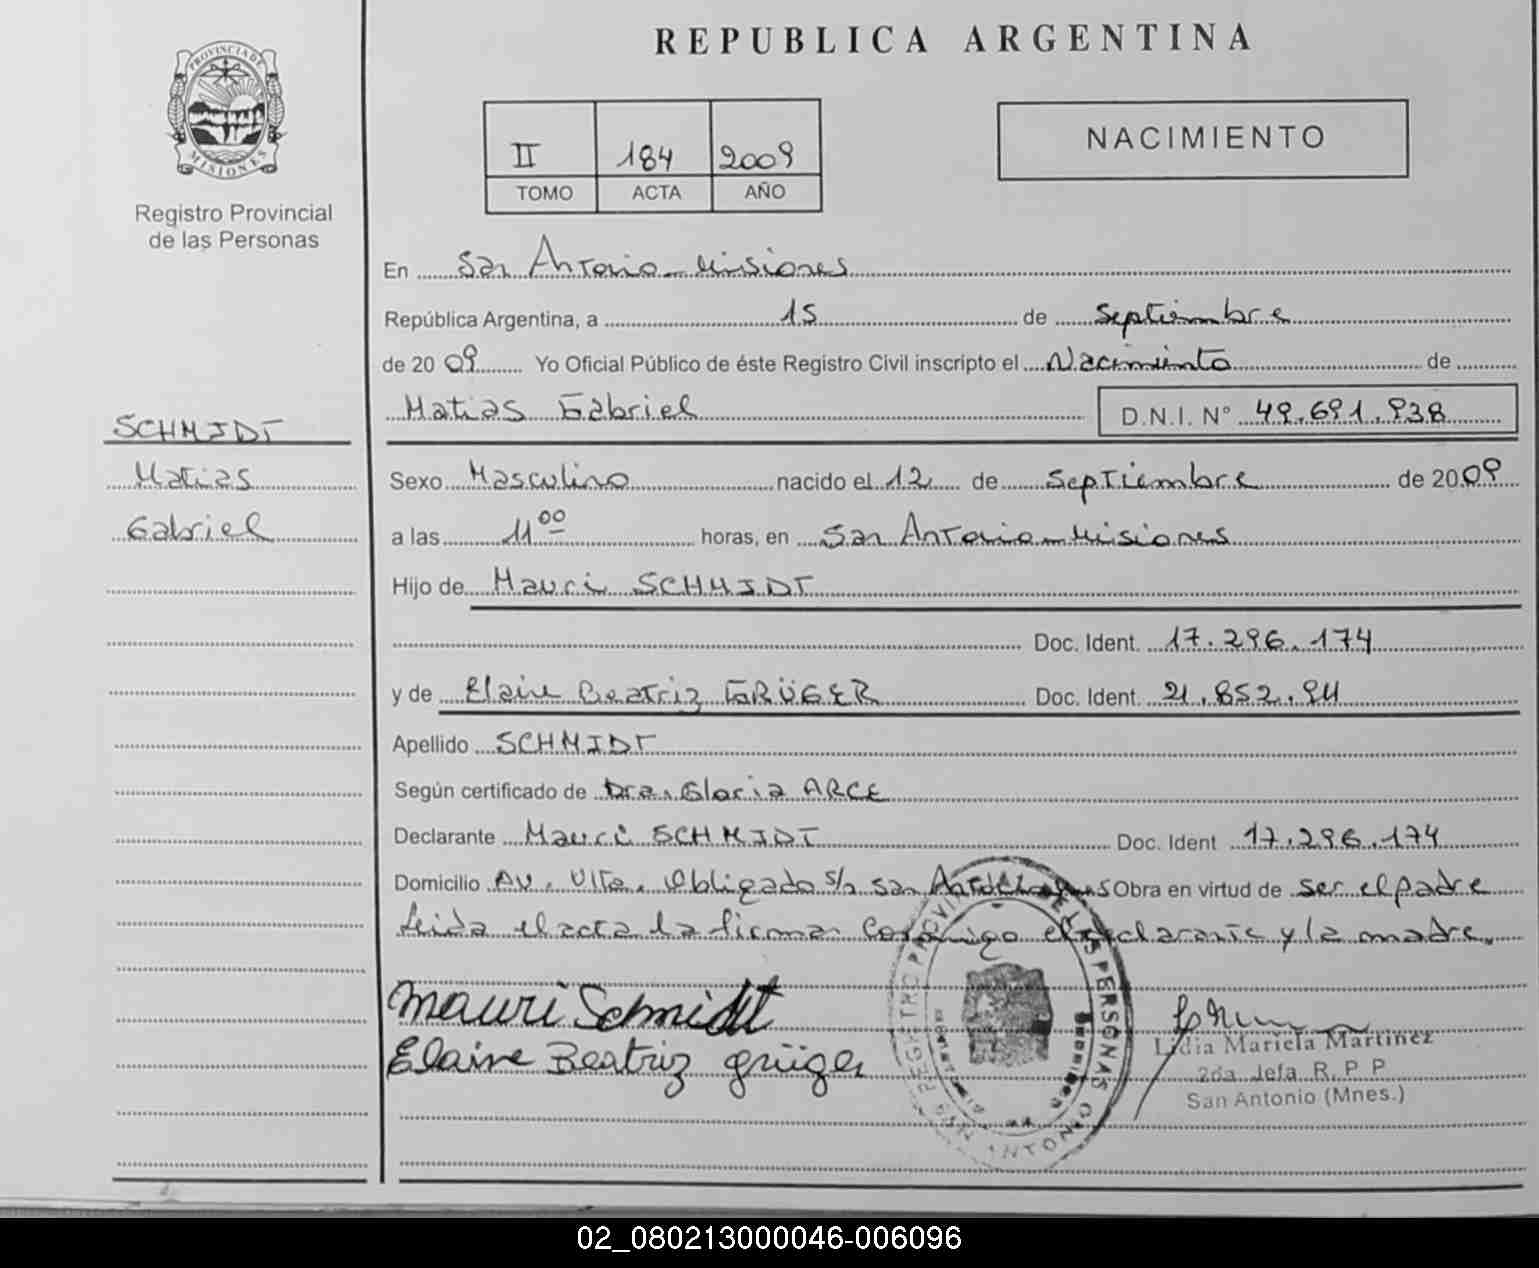 REPUBLICA ARGENTINA
PROVINCIA DE
MISIONES
Registro Provincial
de las Personas
II 184 2009
TOMO ACTA AÑO
NACIMIENTO
En San Antonio - Misiones
República Argentina, a 15 de Septiembre
de 20 09 Yo Oficial Público de éste Registro Civil inscripto el Nacimiento de
Matias Gabriel D.N.I. N° 49.691.938
SCHMIDT
Matias
Gabriel
Sexo Masculino nacido el 12 de Septiembre de 2009
a las 11 00 horas, en San Antonio - Misiones
Hijo de Mauri SCHMIDT
Doc. Ident. 17.296.174
y de Elaine Beatriz GRÜGER Doc. Ident. 21.852.
Apellido SCHMIDT
Según certificado de Dra. Gloria ARCE
Declarante Mauri SCHMIDT Doc. Ident 17.296.174
Domicilio AV. Vlta. Obligado s/n San Obra en virtud de ser el padre
Leida el acta la firman Conmigo el declarante y la madre.
Mauri Schmidt
Elaine Beatriz grüger
REGISTRO PROVINCIAL DE LAS PERSONAS
SAN ANTONIO
MISIONES
Lidia Mariela Martinez
2da. Jefa R.P.P.
San Antonio (Mnes.)
02_080213000046-006096